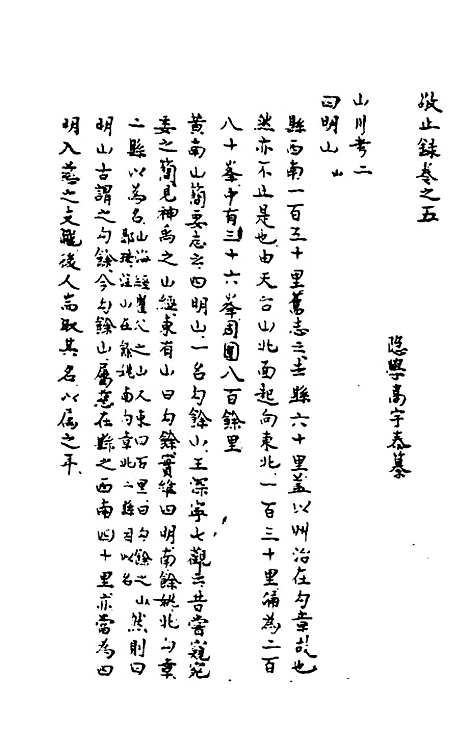 敬止錄卷之五
隱學高宇泰纂
山川考二
四明山 山
縣西南一百五十里舊志云去縣六十里盖以州治在句章故也
然亦不止是也由天台山北面起向東北一百三十里涌為二百
八十峯中有三十六峯周圍八百餘里
黃南山簡要志云四明山一名句餘山王深寧七觀云昔嘗窺宛
委之簡見神禹之山經東有山曰句餘實維四明南餘姚北句章
二縣以為名山海經 之山又東四百里曰句餘之山然則四
郭璞注山在餘姚南句章北二縣因以名
明山古謂之句餘今句餘山屬慈在縣之西南四十里亦當為四
明入慈之支隴後人耑取其名以屬之耳